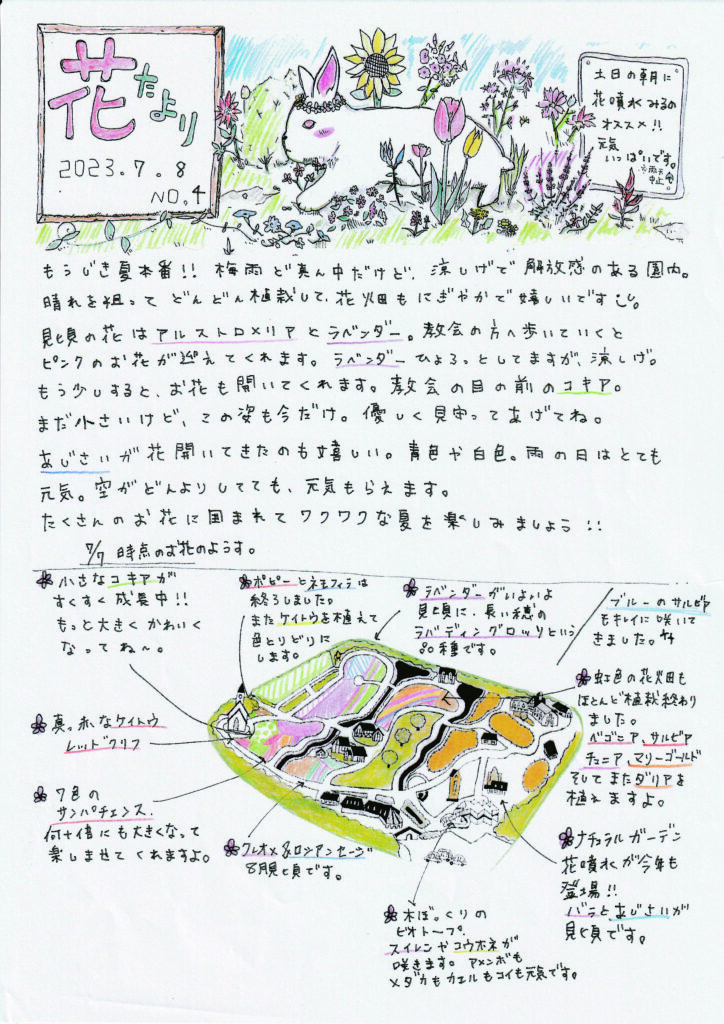 花だより
2023.7.8
NO.4
土日の朝に
花噴水みるの
オススメ!!
元気
いっぱいです。
※雨天
中止
もうじき夏本番!! 梅雨ど真ん中だけど、涼しげで解放感のある園内。
晴れを狙ってどんどん植栽して、花畑もにぎやかで嬉しいです
見頃の花はアルストロメリアとラベンダー。教会の方へ歩いていくと
ピンクのお花が迎えてくれます。ラベンダーひょろっとしてますが、涼しげ。
もう少しすると、お花も開いてくれます。教会の目の前のコキア。
まだ小さいけど、この姿も今だけ。優しく見守ってあげてね。
あじさいが花開いてきたのも嬉しい。青色や白色。雨の日はとても
元気。空がどんよりしてても、元気もらえます。
たくさんのお花に囲まれてワクワクな夏を楽しみましょう!!
7/7 時点のお花のようす。
小さなコキアが
すくすく成長中!!
もっと大きくかわいく
なってね〜。
ポピーとネモフィラは
終了しました。
またケイトウを植えて
色とりどりに
します。
ラベンダーがいよいよ
見頃に、長い穂の
ラバディングロッソという
品種です。
ブルーのサルビア
もキレイに咲いて
きました。
虹色の花畑も
ほとんど植栽終わり
ました。
ベゴニア、サルビア
チュニア、マリーゴールド
そしてまたダリアを
植えますよ。
真っ赤なケイトウ
レッドクリフ
7色の
サンパチェンス.
何十倍にも大きくなって
楽しませてくれますよ。
クレオメ&ロシアンセージ
8月見頃です。
ナチュラルガーデン
花噴水が今年も
登場!!
バラとあじさいが
見頃です。
木ぼっくりの
ビオトープ.
スイレンやコウホネが
咲きます。アメンボも
メダカもカエルもコイも元気です。